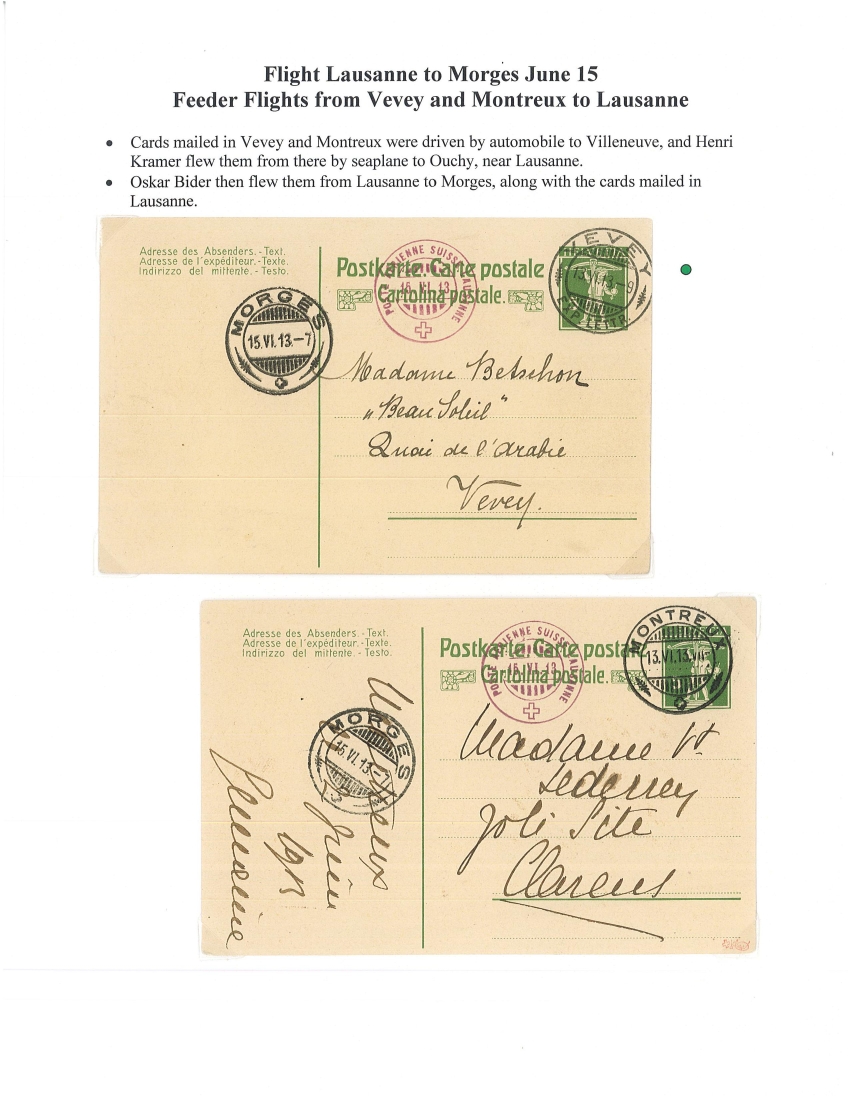 Flight Lausanne to Morges June 15
Feeder Flights from Vevey and Montreux to Lausanne
• Cards mailed in Vevey and Montreux were driven by automobile to Villeneuve, and Henri
Kramer flew them from there by seaplane to Ouchy, near Lausanne.
• Oskar Bider then flew them from Lausanne to Morges, along with the cards mailed in
Lausanne.
Adresse des Absenders. - Text.
Adresse de l'expéditeur. - Texte.
Indirizzo del mittente. - Testo.
Postkarte. Carte postale
Cartolina postale.
POSTE AÉRIENNE SUISSE LAUSANNE
15 VI 13
VEVEY
13.VI.13.-9
EXP. LETTR.
MORGES
15.VI.13.-7
Madame Betschon
„Beau Soleil"
Quai de l'Arabie
Vevey.
Adresse des Absenders. - Text.
Adresse de l'expéditeur. - Texte.
Indirizzo del mittente. - Testo.
Postkarte. Carte postale
Cartolina postale.
POSTE AÉRIENNE SUISSE LAUSANNE
15 VI 13
MONTREUX
13.VI.13.VII-
MORGES
15.VI.13.-7
Madame
Lederrey
Joli Site
Clarens
juin
1913